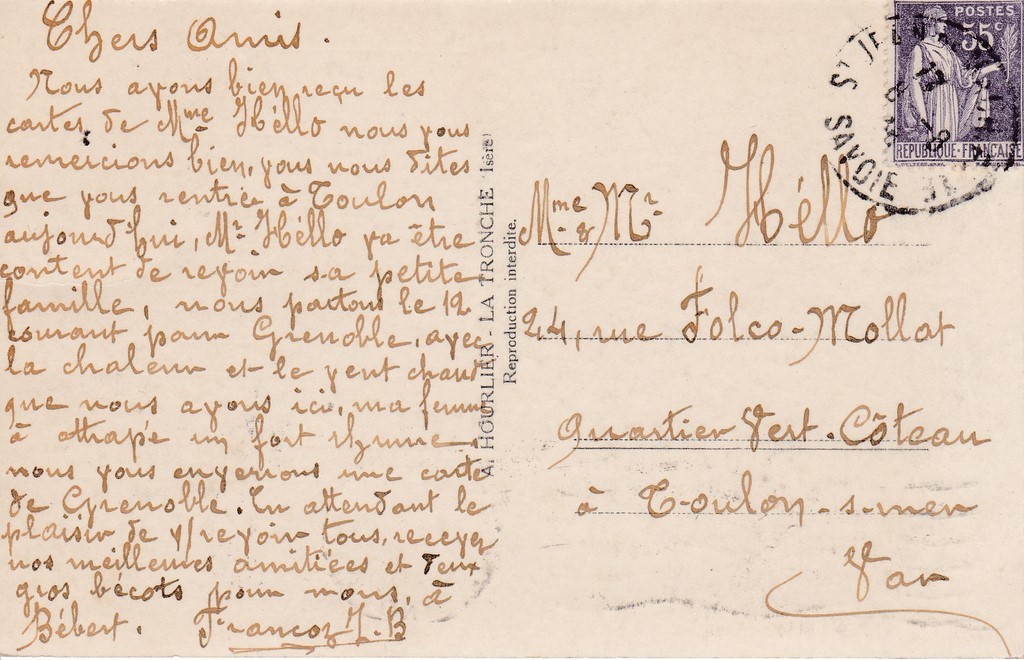 Chers Amis.
Nous avons bien reçu les
cartes, de Mme Héllo nous vous
remercions bien, vous nous dites
que vous rentré à Toulon
aujourd'hui, Mr Héllo va être
content de revoir sa petite
famille, nous partons le 12
courant pour Grenoble, avec
la chaleur et le vent chaud
que nous avons ici, ma femme
à attrapé un fort rhume,
nous vous enverrons une carte
de Grenoble. En attendant le
plaisir de v/revoir tous, recevez
nos meilleures amitiées et deux
gros bécots pour nous, à
Bébert. Francoz J.B
A. HOURLIER - LA TRONCHE (Isère)
Reproduction interdite.
POSTES
55c
REPUBLIQUE-FRANÇAISE
SAVOIE
Mme & Mr Héllo
24, rue Folco-Mollat
Quartier Vert-Côteau
à Toulon-s-mer
Var